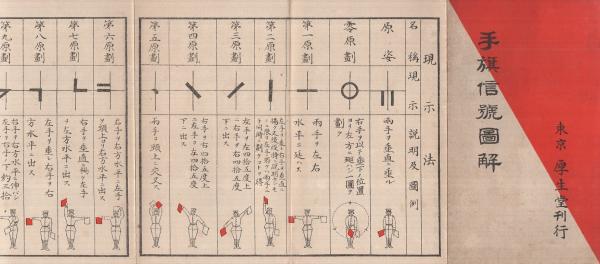 手旗信號圖解
東京 厚生堂刊行
現示法
名稱
現示
説明及圖例
原姿
兩手ヲ垂直ニ垂ル
零原劃
右手ヲ以テ垂下ノ位置
ヨリ左方ニ廻ハシ一圓ヲ
劃ク
第一原劃
兩手ヲ左右
水平ニ延ハス
第二原劃
第三原劃
左手ヲ左四拾五度上
ニ右手ヲ右四拾五度
下ニ出ス
第四原劃
右手ヲ右四拾五度上
ニ左手ヲ左四拾五度
下ニ出ス
第五原劃
兩手ヲ頭上ニ交叉ス
第六原劃
右手ヲ右方水平ニ左手
ヲ頭上ヨリ右方水平ニ出ス
第七原劃
右手ヲ垂直ニ揚ケ左手
ヲ左方水平ニ出ス
第八原劃
左手ヲ垂レ右手ヲ右
方水平ニ出ス
第九原劃